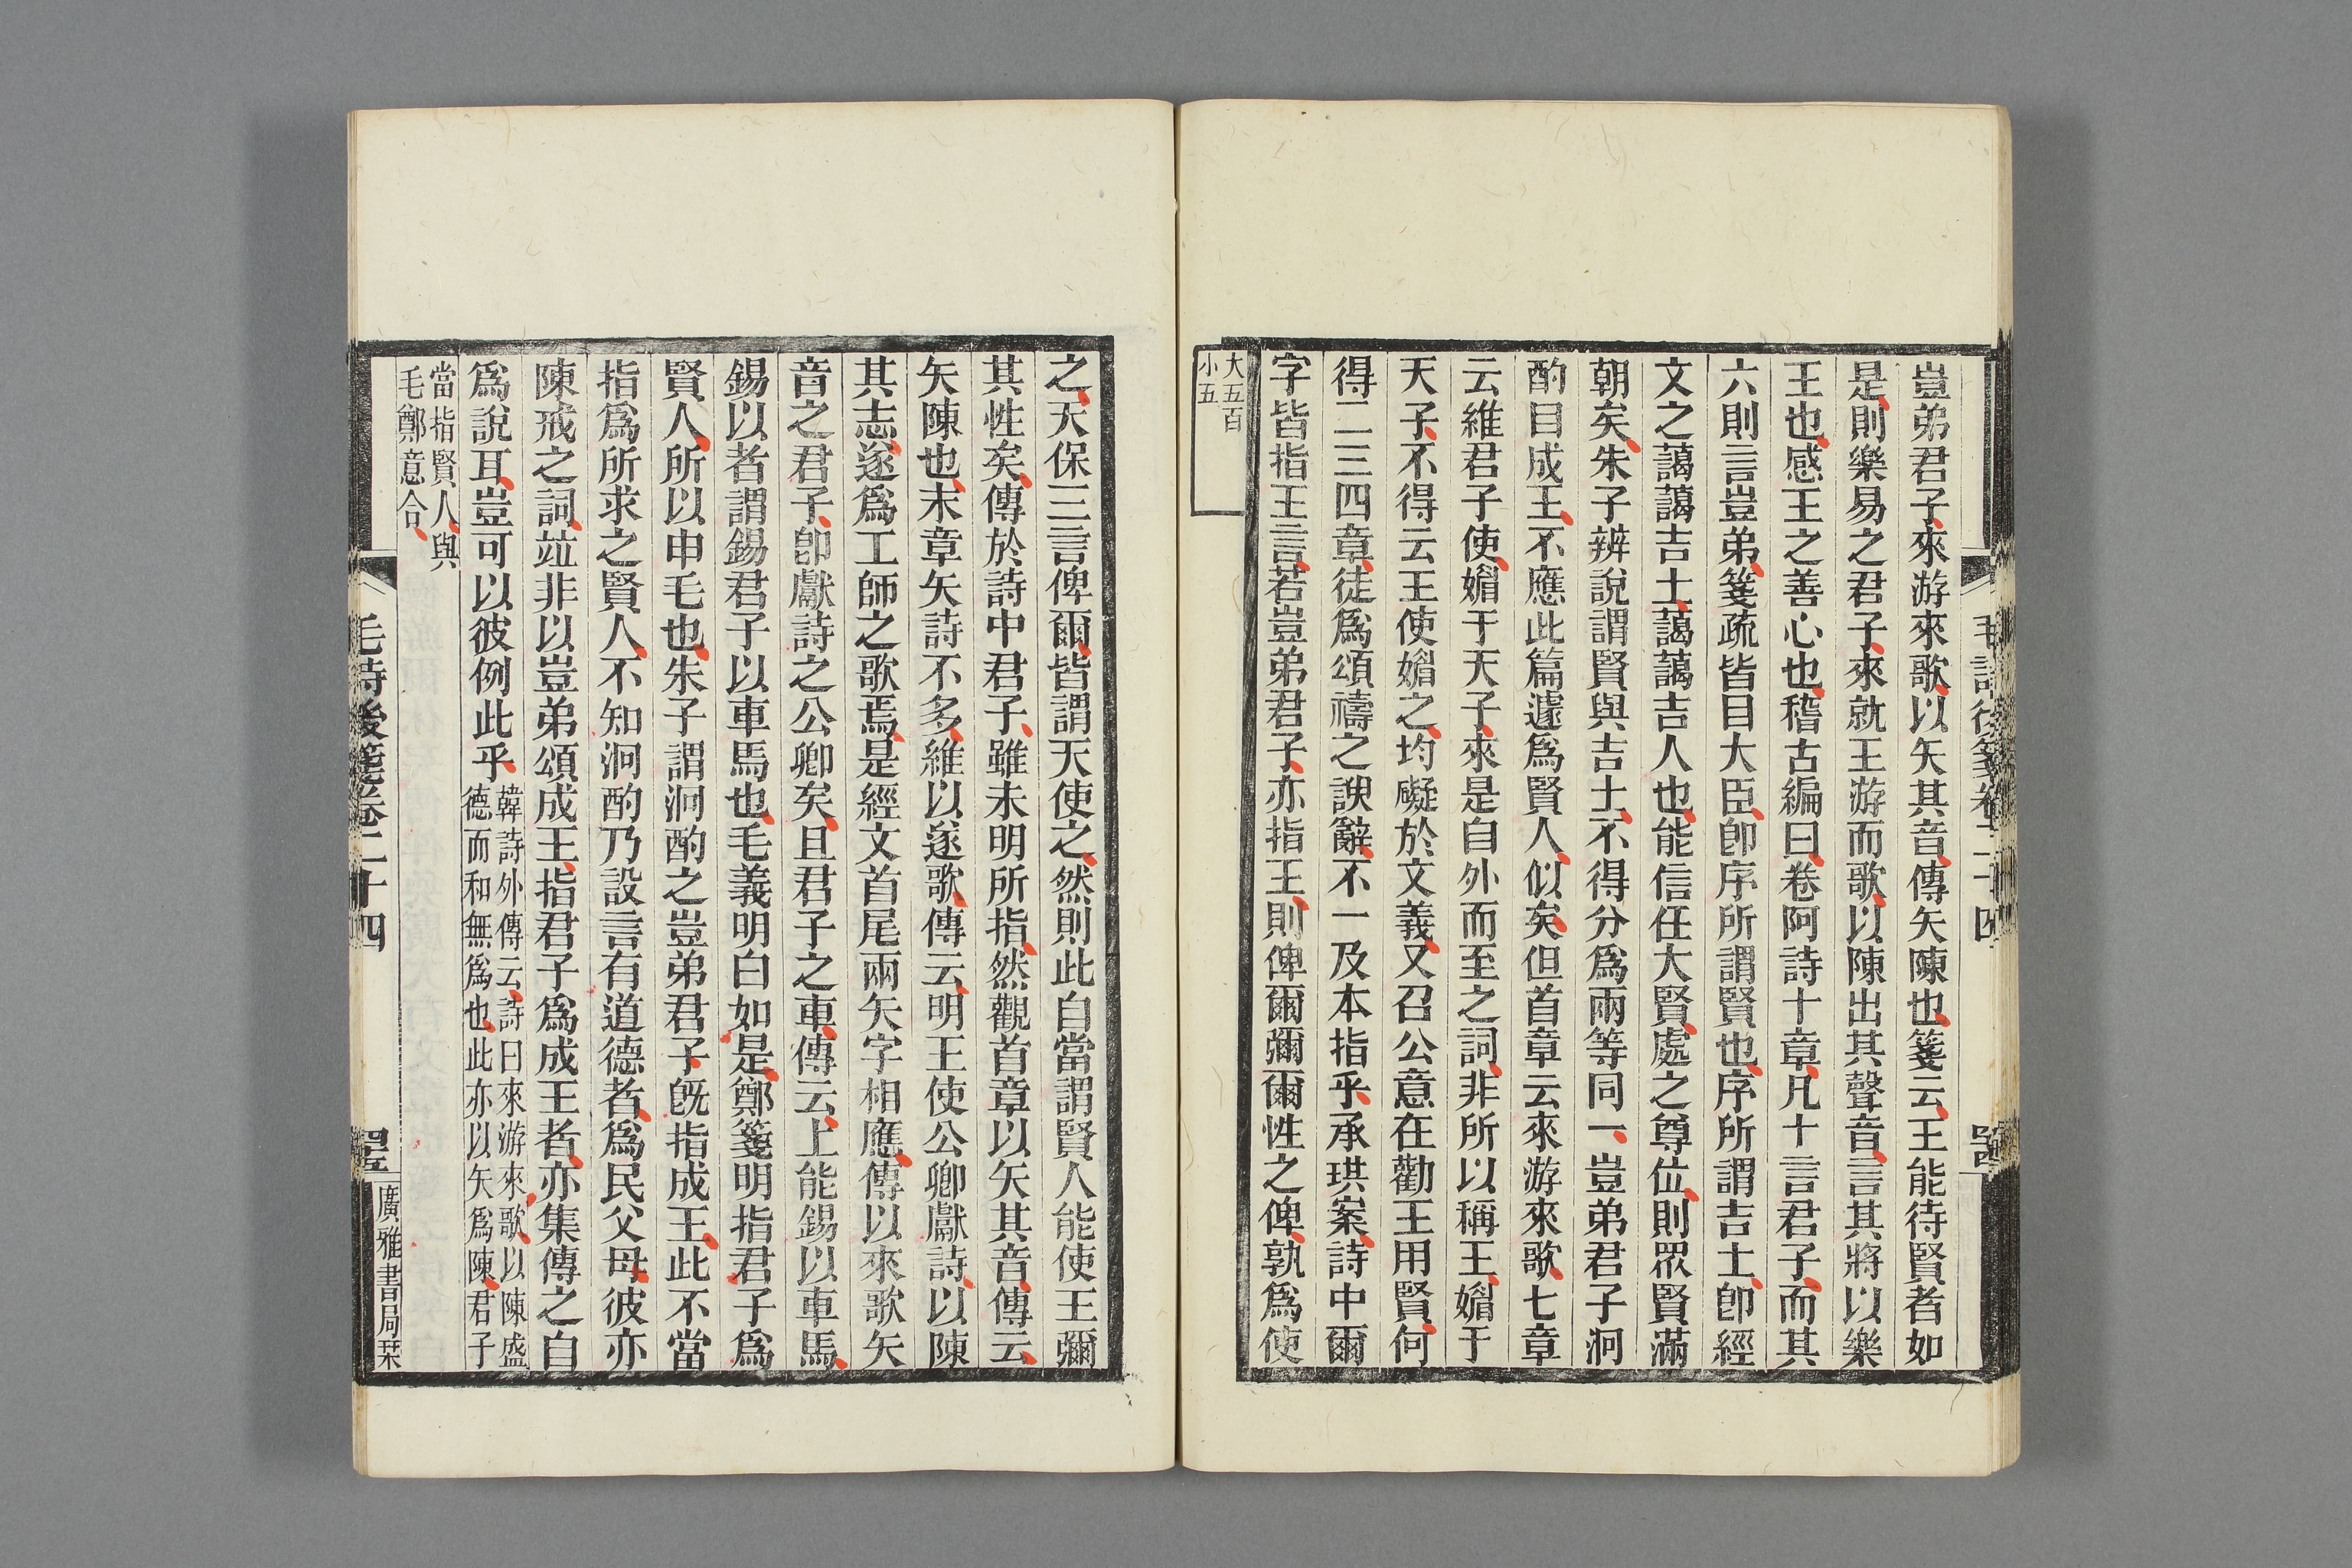 豈弟君子來游來歌以矢其音傳矢陳也箋云王能待賢者如
是則樂易之君子來就王游而歌以陳出其聲音言其將以樂
王也感王之善心也稽古編曰卷阿詩十章凡十言君子而其
六則言豈弟箋疏皆目大臣卽序所謂賢也序所謂吉士卽經
文之藹藹吉士藹藹吉人也能信任大賢處之尊位則眾賢滿
朝矣朱子辨說謂賢與吉士不得分爲兩等同一豈弟君子泂
酌目成王不應此篇遽爲賢人似矣但首章云來游來歌七章
云維君子使媚于天子來是自外而至之詞非所以稱王媚于
天子不得云王使媚之均礙於文義又召公意在勸王用賢何
得二三四章徒爲頌禱之諛辭不一及本指乎承珙案詩中爾
字皆指王言若豈弟君子亦指王則俾爾彌爾性之俾孰爲使
大五百
小五
之天保三言俾爾皆謂天使之然則此自當謂賢人能使王彌
其性矣傳於詩中君子雖未明所指然觀首章以矢其音傳云
矢陳也末章矢詩不多維以遂歌傳云明王使公卿獻詩以陳
其志遂爲工師之歌焉是經文首尾兩矢字相應傳以來歌矢
音之君子卽獻詩之公卿矣且君子之車傳云上能錫以車馬
錫以者謂錫君子以車馬也毛義明白如是鄭箋明指君子爲
賢人所以申毛也朱子謂泂酌之豈弟君子旣指成王此不當
指爲所求之賢人不知泂酌乃設言有道德者爲民父母彼亦
陳戒之詞竝非以豈弟頌成王指君子爲成王者亦集傳之自
爲說耳豈可以彼例此乎韓詩外傳云詩曰來游來歌以陳盛
德而和無爲也此亦以矢爲陳君子
當指賢人與
毛鄭意合
毛詩後箋卷二十四
廣雅書局栞